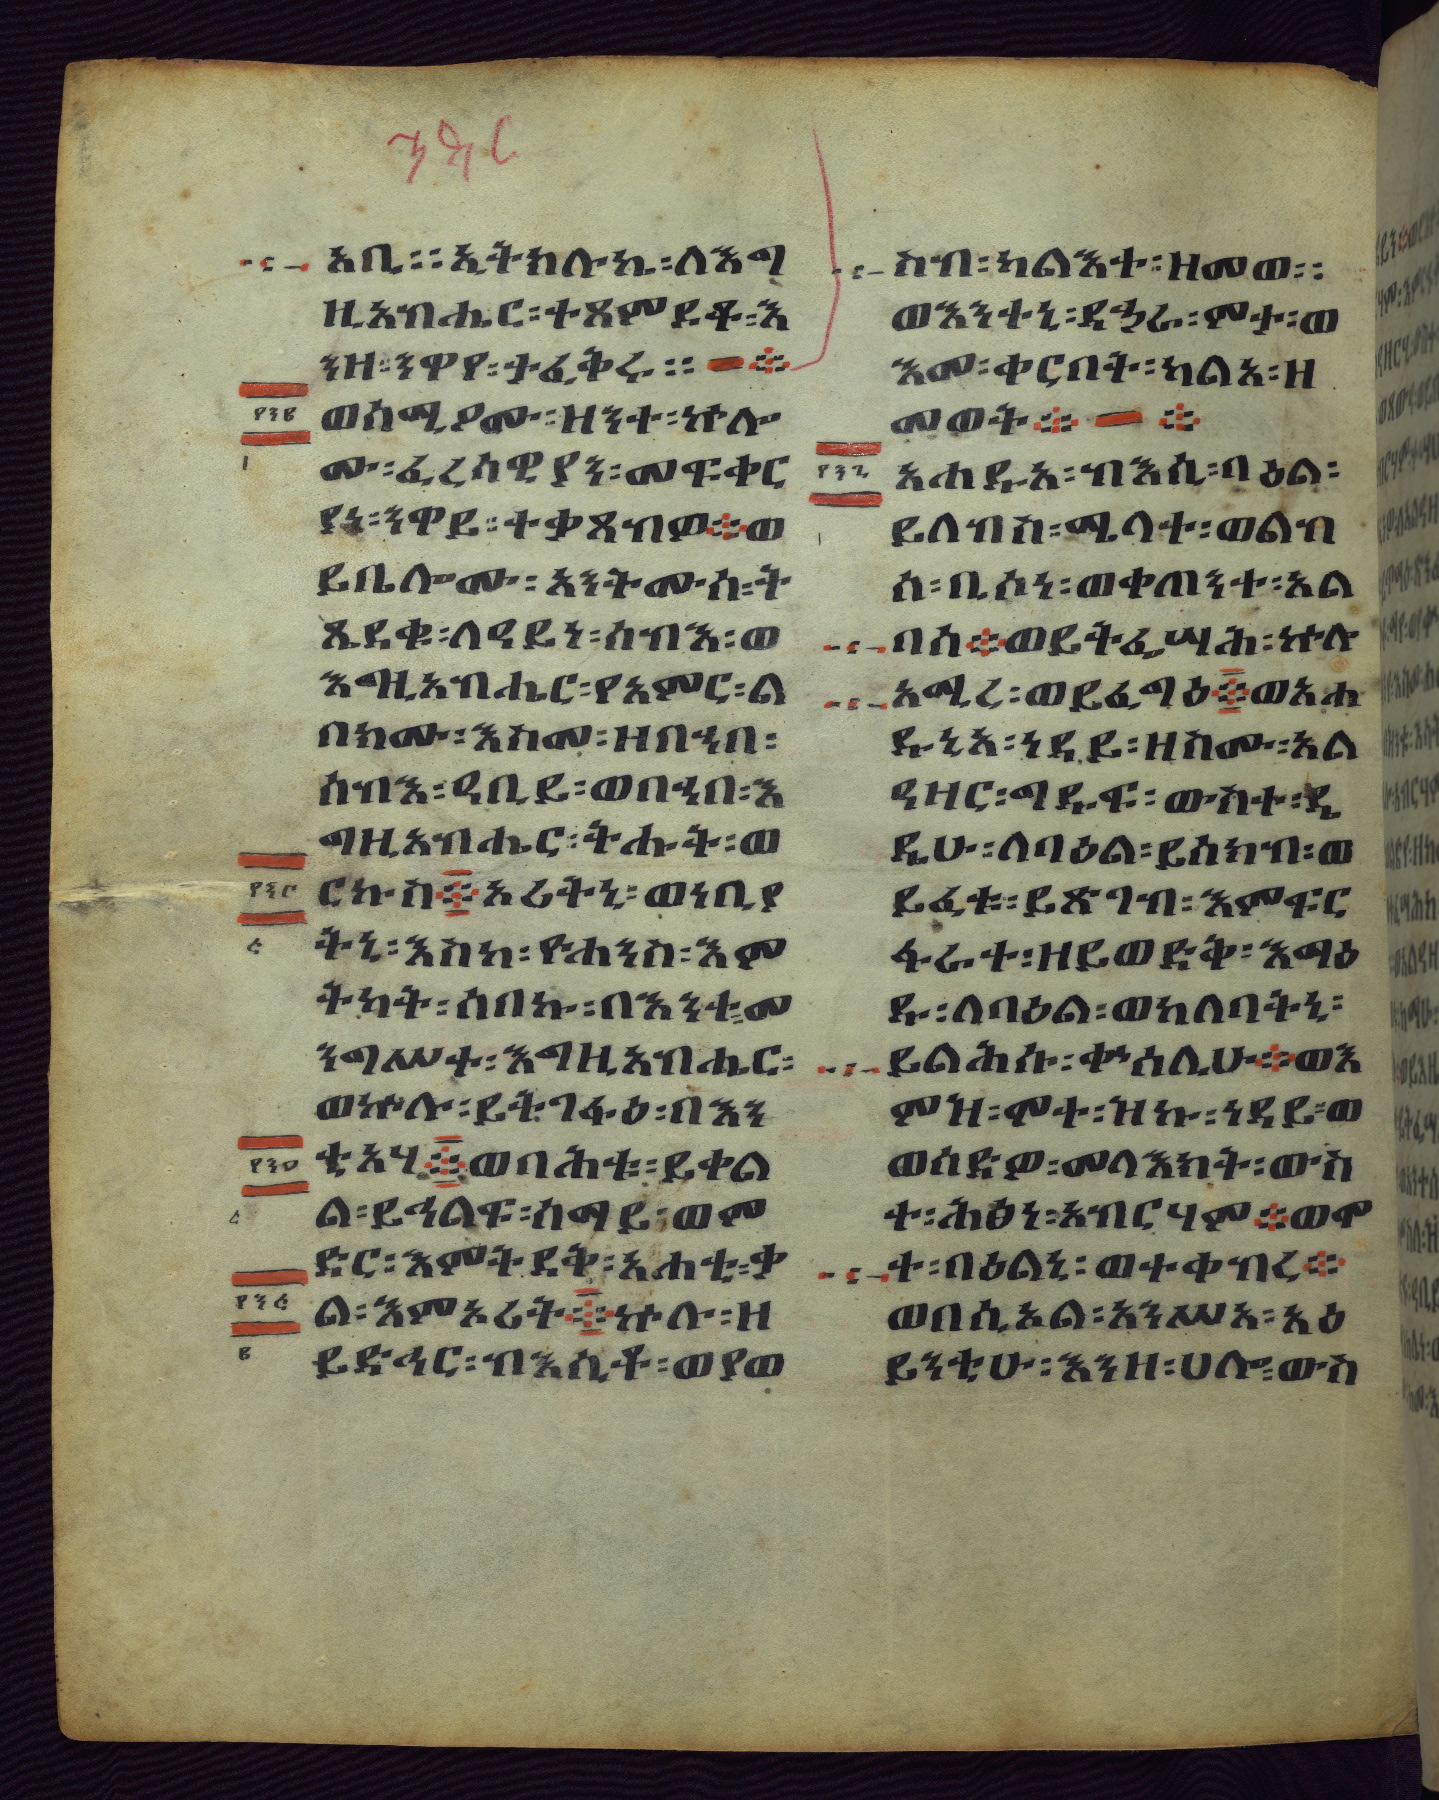 አቢ፡፡ኢትክሉኪ፡ለእግ
ዚአብሔር፡ተጸምዶቶ፡እ
ንዘ፡ንዋየ፡ታፈቅሩ፡፡
ወሰሚዖሙ፡ዘንተ፡ኵሎ
ሙ፡ፈሪሳዊያን፡መፍቀር
ያነ፡ንዋይ፡ተቃጸብዎ፨ወ
ይቤሎሙ፡አንትሙሰ፡ት
ጼድቁ፡ለዓይነ፡ሰብእ፡ወ
እግዚአብሔር፡የአምር፡ል
በክሙ፡እስመ፡ዘበኀበ፡
ሰብእ፡ዓቢይ፡ወበኀበ፡እ
ግዚአብሔር፡ትሑት፡ወ
ርኩስ፨አሪትኒ፡ወነቢያ
ትኒ፡እስከ፡ዮሐንስ፡እም
ትካት፡ሰበኩ፡በእንተ፡መ
ንግሥተ፡እግዚአብሔር፡
ወኵሉ፡ይትገፋዕ፡በእን
ቲአሃ፨ወባሕቱ፡ይቀል
ል፡ይኀልፍ፡ሰማይ፡ወም
ድር፡እምትደቅ፡አሐቲ፡ቃ
ል፡እምኦሪት፨ኵሉ፡ዘ
ይድኅር፡ብእሲቶ፡ወያወ
ንድር
ስብ፡ካልእተ፡ዘመወ፡፡
ወእንተኒ፡ደኃራ፡ምታ፡ወ
እመ፡ቀርበት፡ካልአ፡ዘ
መወት፨
አሐዱ፡ብእሲ፡ባዕል፡
ይለብስ፡ሜላተ፡ወልብ
ሰ፡ቢሶነ፡ወቀጠንተ፡አል
ባሰ፨ወይትፌሣሕ፡ኵሎ
አሚረ፡ወይፈግዕ፨ወአሐ
ዱ፡ነዳይ፡ዘስሙ፡አል
ዓዛር፡ግዱፍ፡ውስተ፡ዴ
ዴሁ፡ለባዕል፡ይሰክብ፡ወ
ይፈቱ፡ይጽገብ፡እምፍር
ፋራተ፡ዘይወድቅ፡እማዕ
ዱ፡ለባዕል፡ወከለባትኒ፡
ይልሕሱ፡ቍስሊሁ፨ወእ
ምዝ፡ሞተ፡ዝኩ፡ነዳይ፡ወ
ወሰድዎ፡መላእክት፡ውስ
ተ፡ሕፅነ፡አብርሃም፨ወሞ
ተ፡ባዕልኒ፡ወተቀብረ፨
ወበሲኦል፡አንሥአ፡አዕ
ይንቲሁ፡እንዘ፡ሀሎ፡ውስ